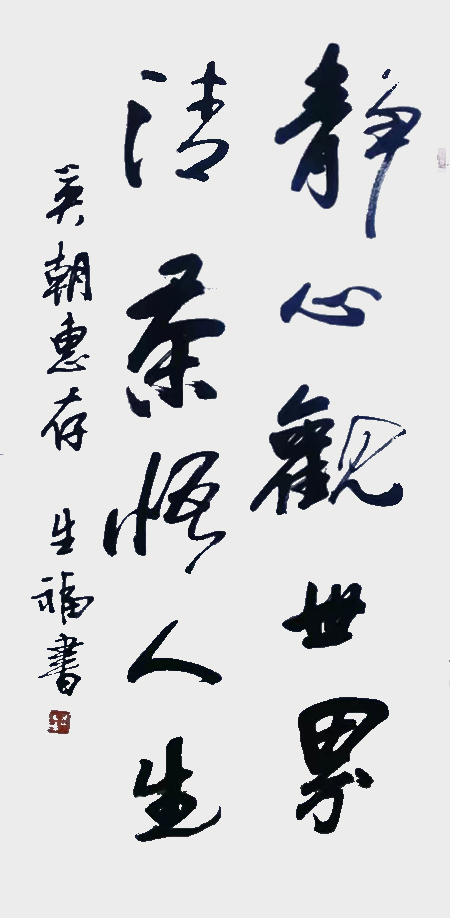 靜心觀世界
清茶悟人生
吴朝惠存 生福書